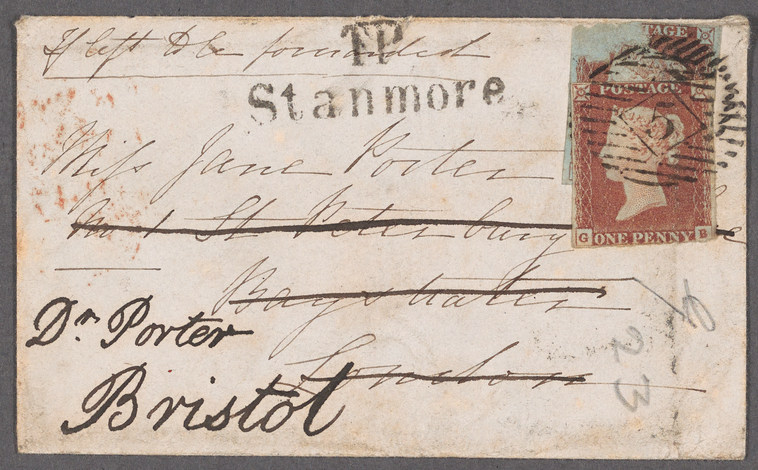 If left to be forwarded
TP
Stanmore
TAGE
POSTAGE
5
G ONE PENNY B
Miss Jane Porter
No 1 St Petersburg
Bayswater
London
Dr. Porter
Bristol